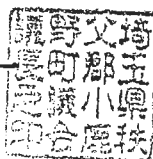 埼玉県秩
父郡小鹿
野町議会
議